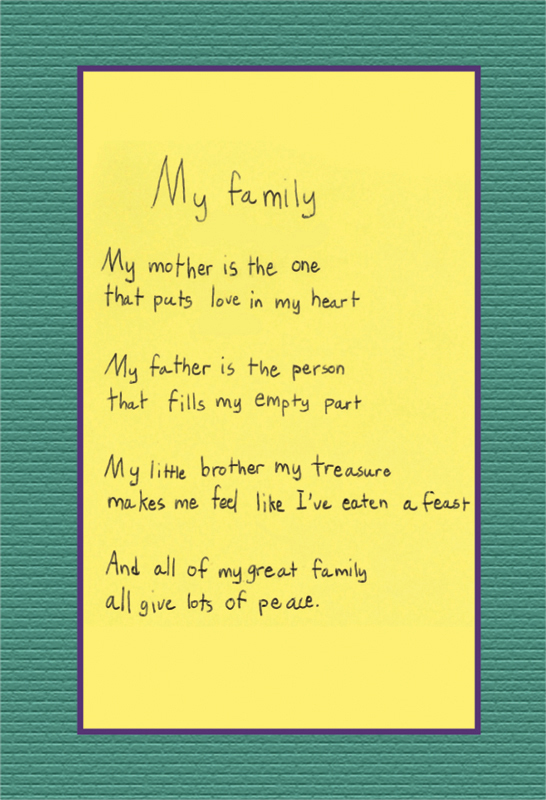 My family
My mother is the one
that puts love in my heart
My father is the person
that fills my empty part
My little brother my treasure
makes me feel like I've eaten a feast
And all of my great family
all give lots of peace.